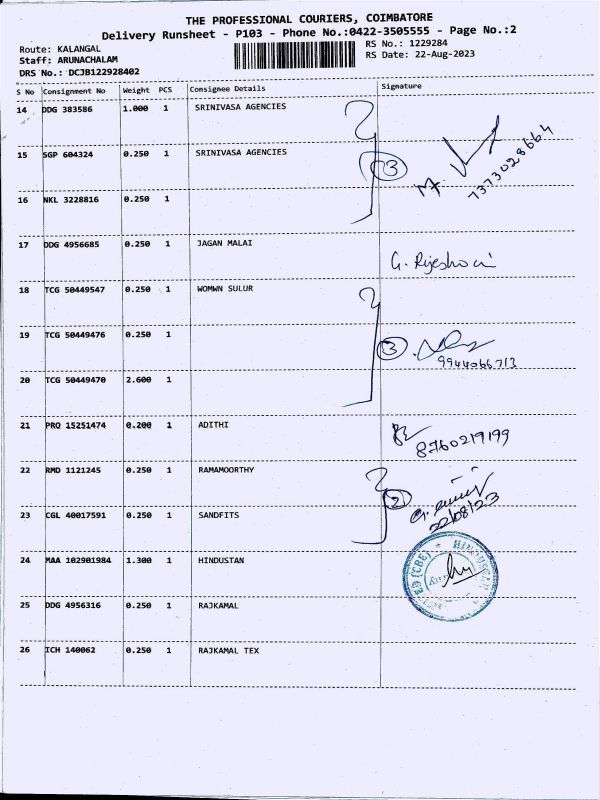 THE PROFESSIONAL COURIERS, COIMBATORE
Delivery Runsheet - P103 - Phone No.:0422-3505555 - Page No.:2
Route: KALANGAL
RS No.: 1229284
Staff: ARUNACHALAM
RS Date: 22-Aug-2023
DRS No.: DCJB122928402
S No Consignment No Weight PCS Consignee Details Signature
14 DDG 383586 1.000 1 SRINIVASA AGENCIES
15 SGP 604324 0.250 1 SRINIVASA AGENCIES
3
7373028664
16 NKL 3228816 0.250 1
17 DDG 4956685 0.250 1 JAGAN MALAI
18 TCG 50449547 0.250 1 WOMWN SULUR
19 TCG 50449476 0.250 1
3
9944066713
20 TCG 50449470 2.600 1
21 PRO 15251474 0.200 1 ADITHI
8760219199
22 RMD 1121245 0.250 1 RAMAMOORTHY
2
22/08/23
23 CGL 40017591 0.250 1 SANDFITS
24 MAA 102901984 1.300 1 HINDUSTAN
25 DDG 4956316 0.250 1 RAJKAMAL
26 ICH 140062 0.250 1 RAJKAMAL TEX